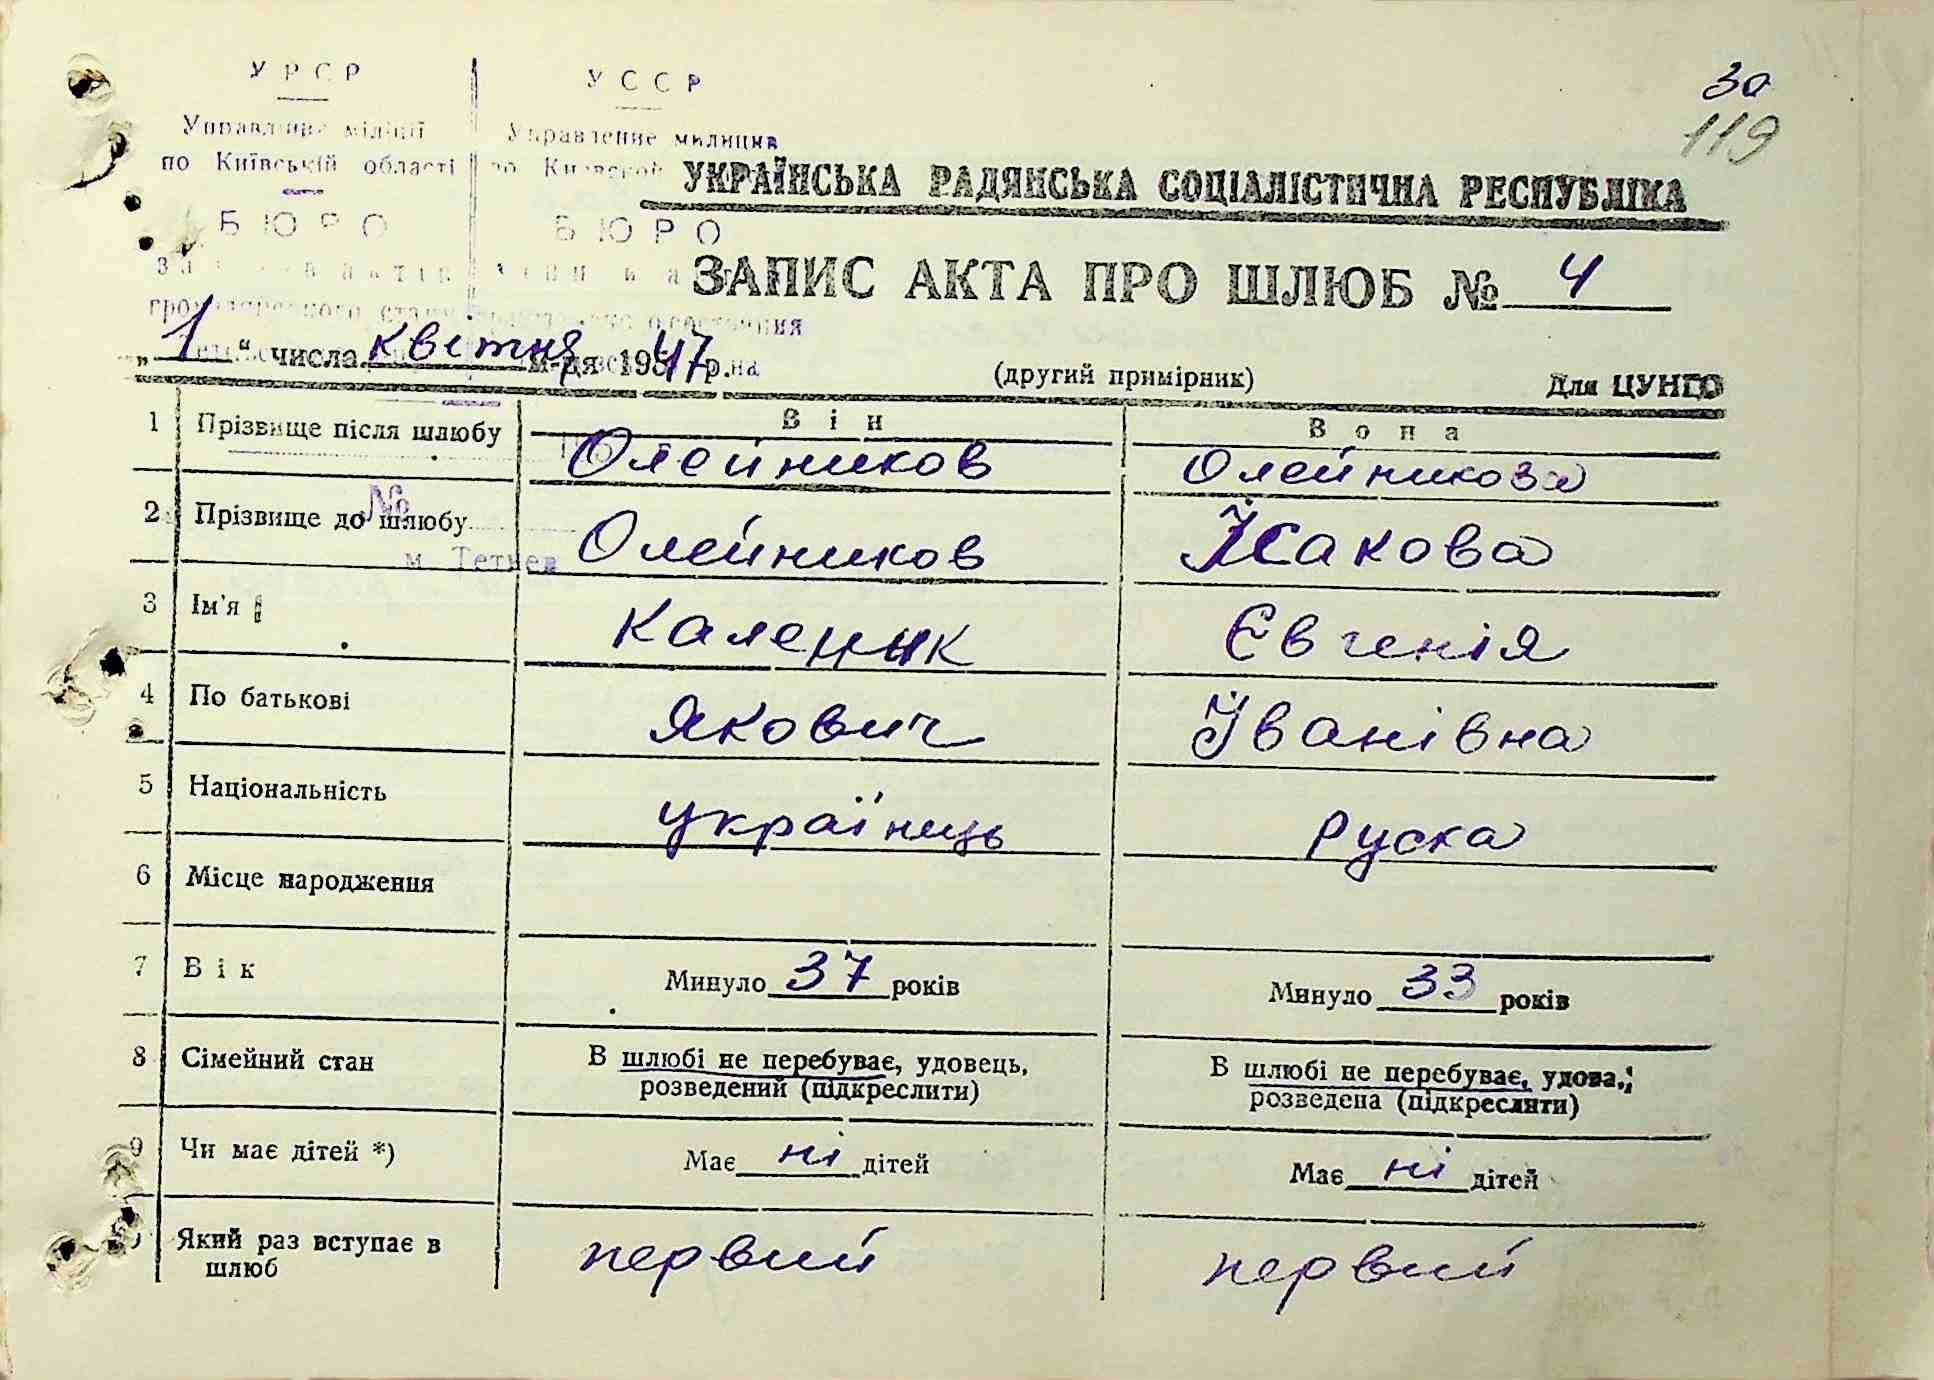 УРСР
УССР
Управление милиции
по Київській області
БЮРО
БЮРО
30
119
УКРАЇНСЬКА РАДЯНСЬКА СОЦІАЛІСТИЧНА РЕСПУБЛІКА
ЗАПИС АКТА ПРО ШЛЮБ № 4
„ 1 “ числа квітня м-ця 1947 р.
(другий примірник) Для ЦУНГО
Він Вона
1 Прізвище після шлюбу Олейников Олейникова
2 Прізвище до шлюбу Олейников Ісакова
№
м. Тетиев
3 Ім'я Каленик Євгенія
4 По батькові Якович Іванівна
5 Національність українець руска
6 Місце народження
7 Вік Минуло 37 років Минуло 33 років
8 Сімейний стан В шлюбі не перебуває, удовець, В шлюбі не перебуває, удова,
розведений (підкреслити) розведена (підкреслити)
9 Чи має дітей *) Має ні дітей Має ні дітей
Який раз вступає в шлюб первий первий